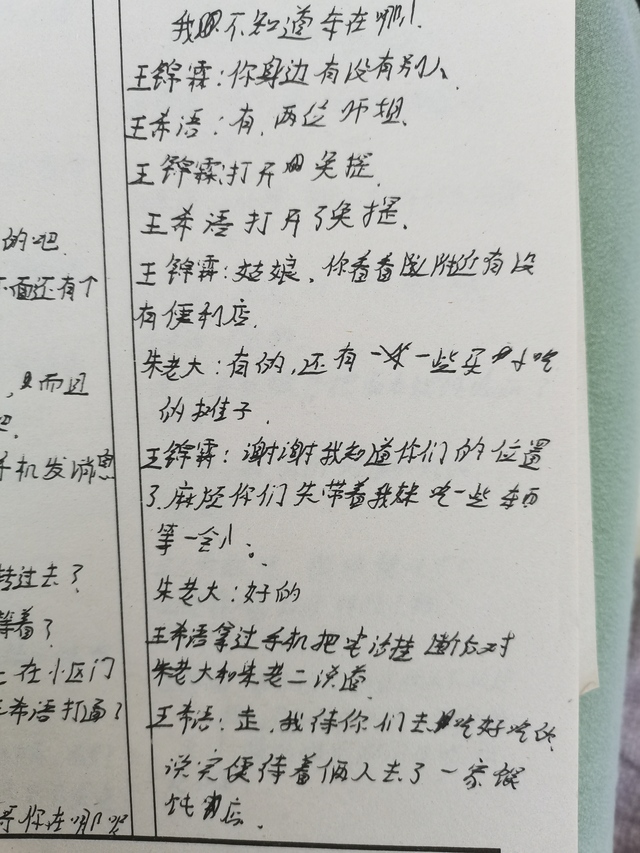 的吧
面还有个
,而且
吧.
手机发消息
转过去了
等着了
在小区门
王希语打通了
哥你在哪呢
我不知道车在哪儿
王锦霖:你身边有没有别人
王希语:有,两位师姐.
王锦霖打开免提.
王希语打开了免提.
王锦霖:姑娘,你看看附近有没
有便利店.
朱老大:有的,还有一些买小吃
的摊子.
王锦霖:谢谢我知道你们的位置
了.麻烦你们先带着我妹吃一些东西
等一会儿。
朱老大:好的
王希语拿过手机把电话挂断后对
朱老大和朱老二说道
王希语:走,我待你们去吃好吃的
说完便待着俩人去了一家馄
饨店.